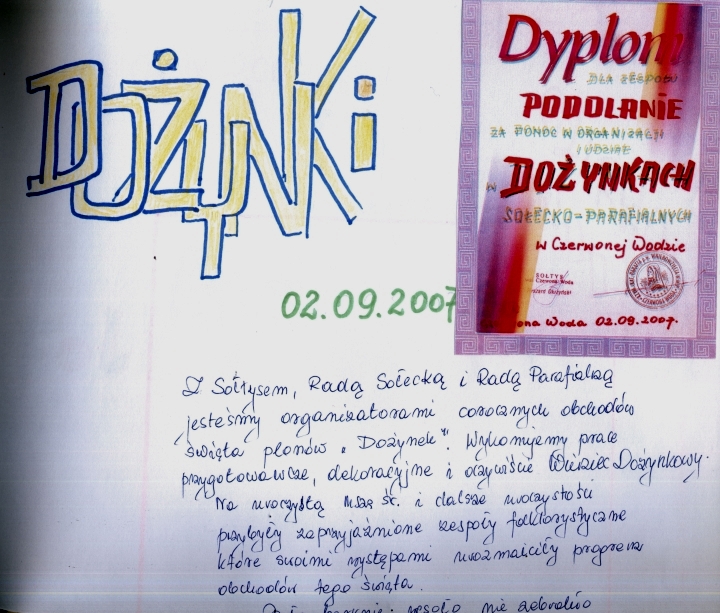 DOŻYNKI
Dyplom
DLA ZESPOŁU
PODOLANIE
ZA POMOC W ORGANIZACJI
I UDZIAŁ
W DOŻYNKACH
SOŁECKO-PARAFIALNYCH
w Czerwonej Wodzie
SOŁTYS
Czerwona Woda
ona Woda 02.09.2007.
02.09.2007
Z Sołtysem, Radą Sołecką i Radą Parafialną
jesteśmy organizatorami corocznych obchodów
święta plonów „Dożynek". Wykonujemy prace
przygotowawcze, dekoracyjne i oczywiście Wieniec Dożynkowy.
Na uroczystą mszę św. i dalsze uroczystości
przybyły zaprzyjaźnione zespoły folklorystyczne
które swoimi występami urozmaiciły program
obchodów tego święta.
wesoło nie zabrakło